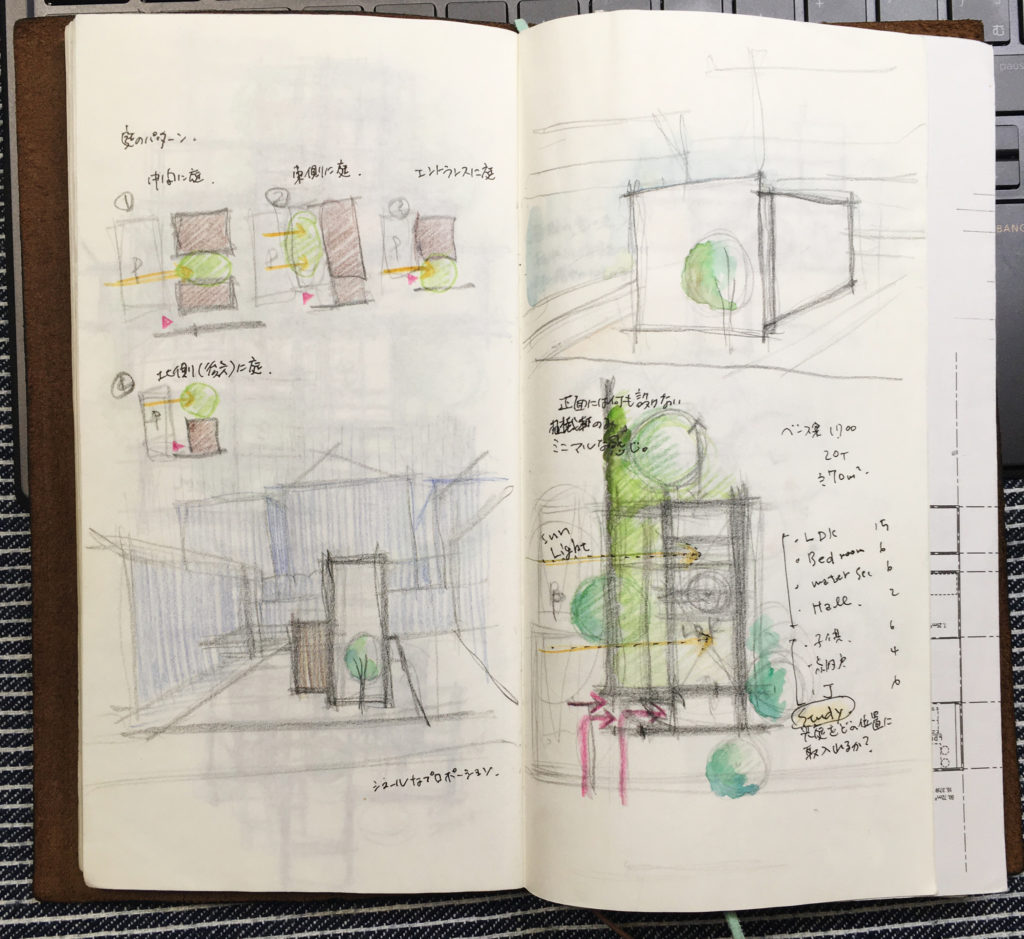 庭のパターン.
中間に庭.
東側に庭.
エントランスに庭
①
②
③
P
P
P
北側(後ろ)に庭.
④
P
シュールなプロポーション.
正面には何も設けない
植栽のみ
ミニマルな感じ。
ベンス邸 1700
20T
≒70m².
Sun
Light
P
・LDK 15
・Bed room 6
・water sec 6
・Hall. 2
・子供. 6
・納戸 4
J 6
Study
光庭をどの位置に
取入れるか?
む
paus
BANG